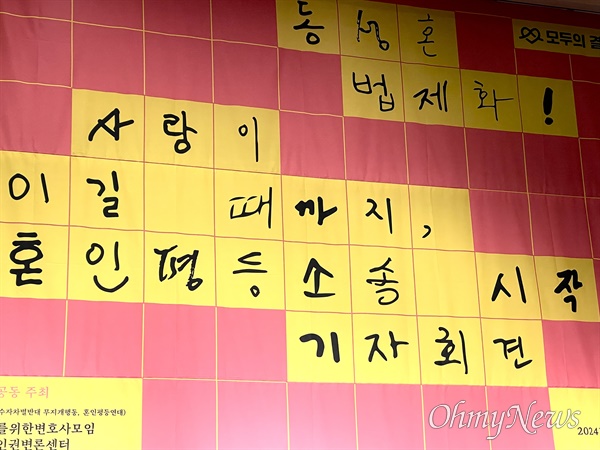 동성혼
모두의 결
법제화!
사랑이
이길 때까지,
혼인평등소송 시작
기자회견
공동 주최
수자차별반대 무지개행동, 혼인평등연대)
를위한변호사모임
인권변론센터
OhmyNews
2024